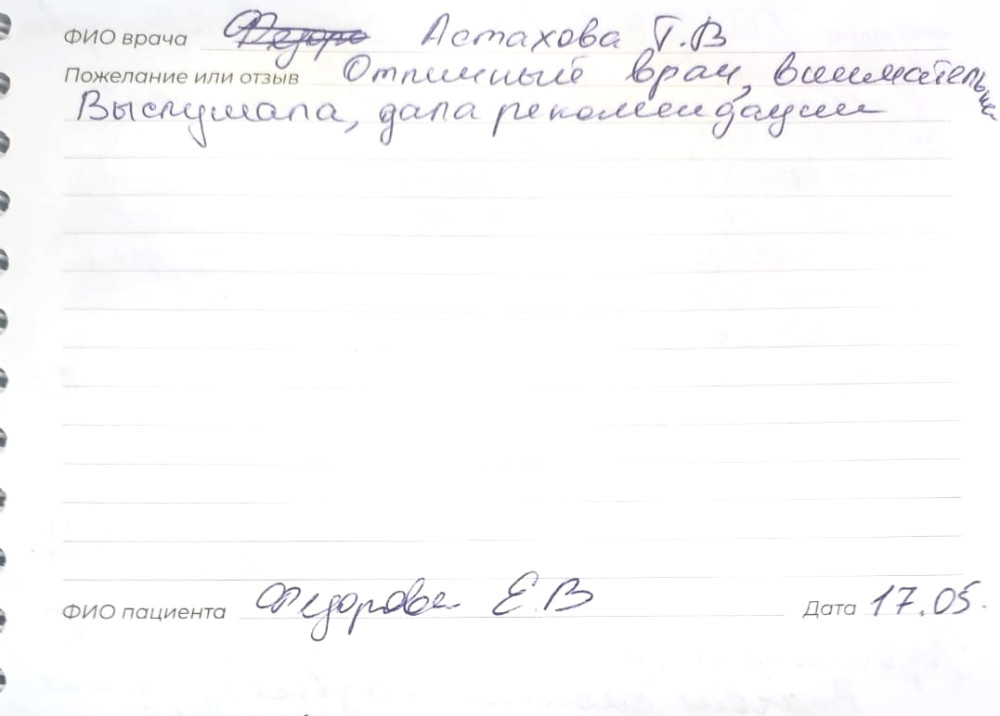 ФИО врача Федоро Астахова Т.В
Пожелание или отзыв Отличный врач, внимательно
Выслушала, дала рекомендации
ФИО пациента Федорова Е.В
Дата 17.05.